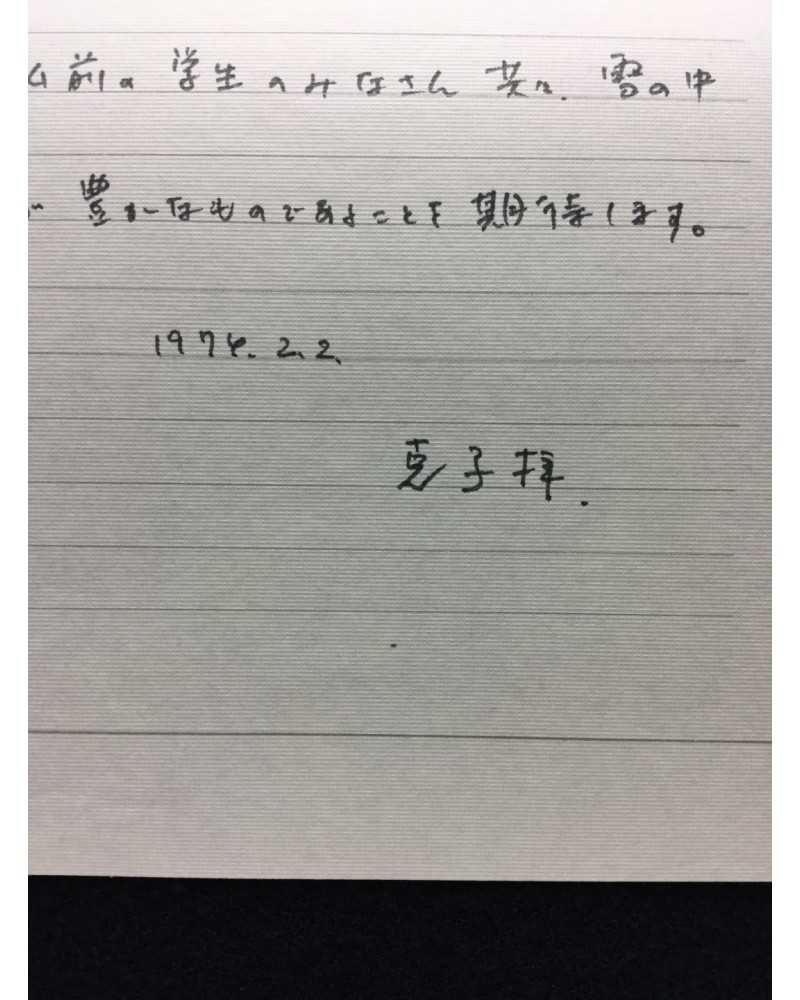 前の学生のみなさん共々、雪の中
豊かなものであることを期待します。
1974.2.2.
克子拝.